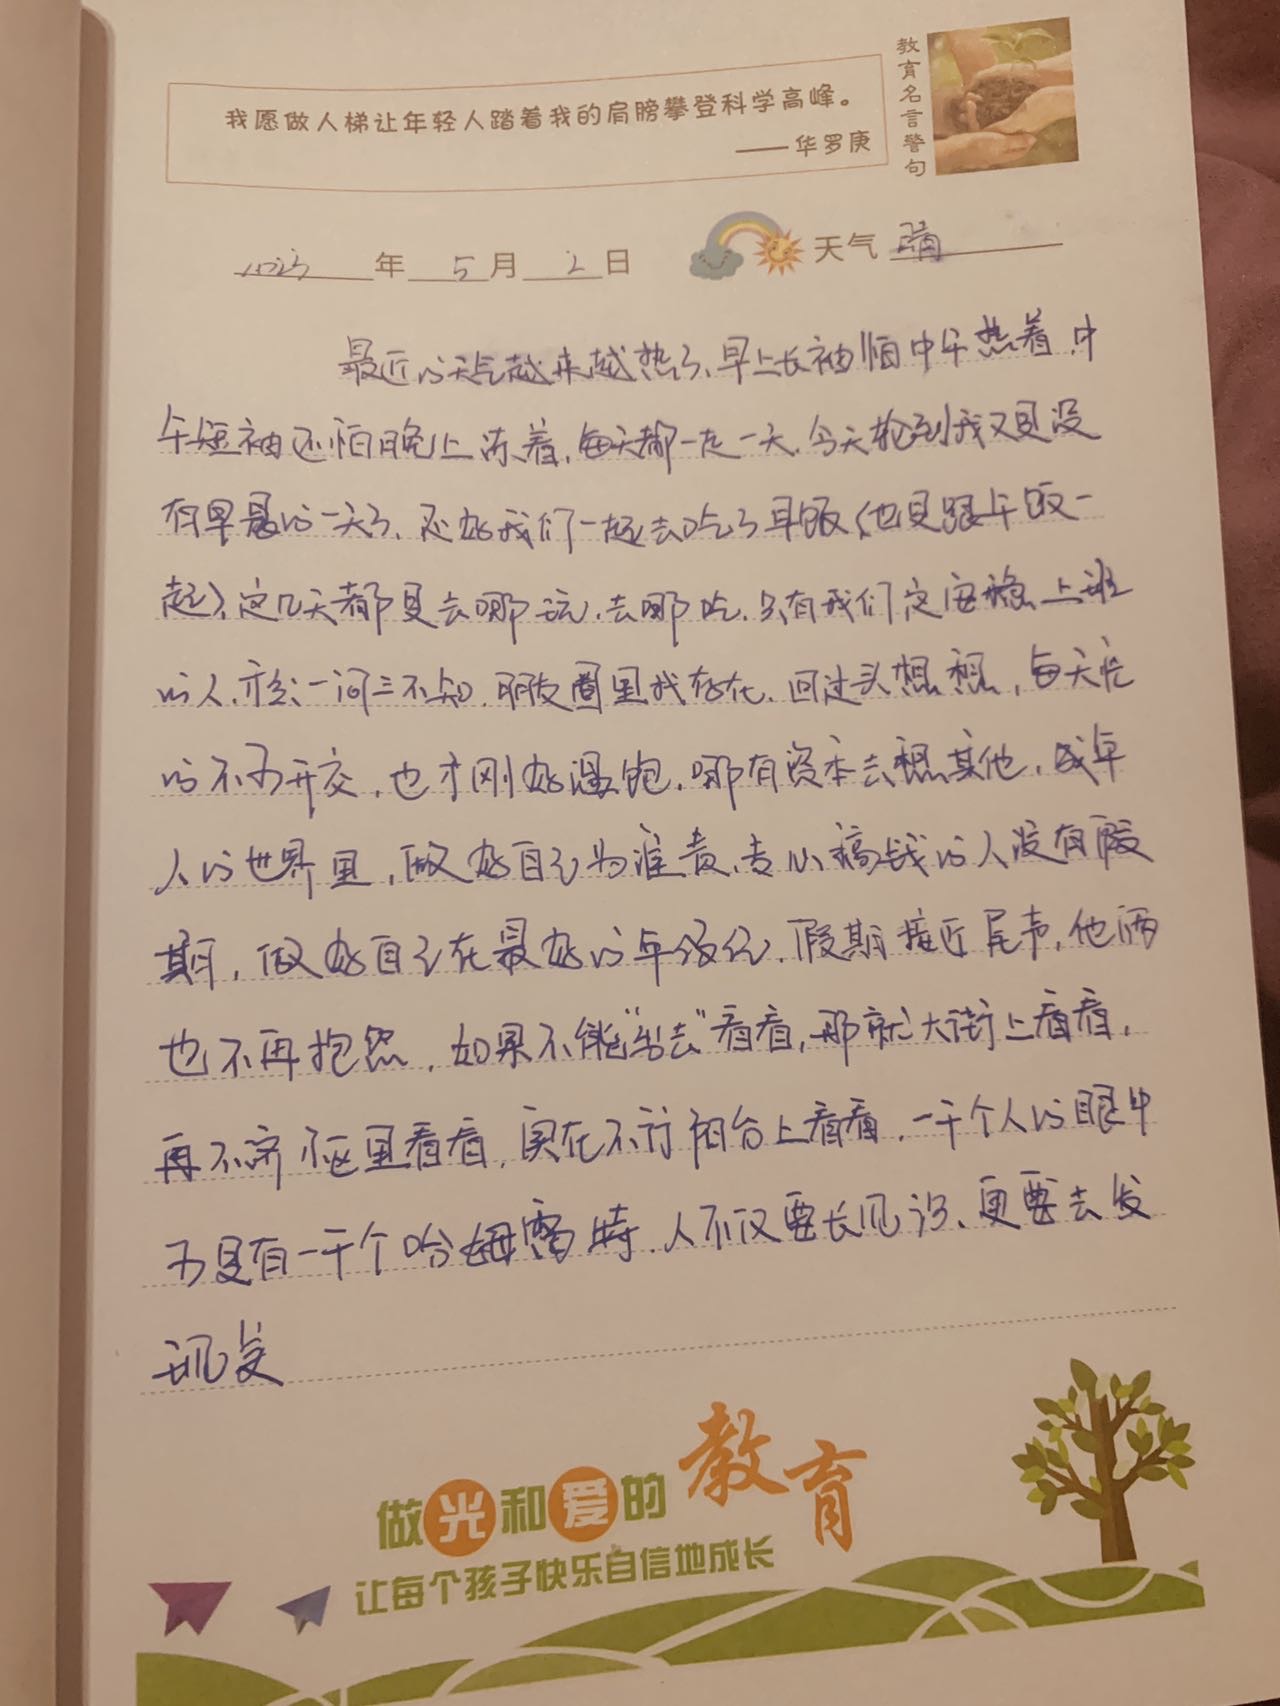 我愿做人梯让年轻人踏着我的肩膀攀登科学高峰。
——华罗庚
教育名言警句
2023年5月2日 天气 晴
最近的天气越来越热了、早上长袖怕中午热着、中
午短袖还怕晚上冻着,每天都一起一天、今天轮到我又是没
有早晨的一天了、还好我们一起去吃了早饭(也是跟午饭一
起)、这几天都是去哪玩、去哪吃、只有我们这安稳上班
的人、一问三不知、朋友圈里找存在、回过头想想,每天忙
的不可开交,也才刚好温饱、哪有资本去想其他、成年
人的世界里,做好自己为准责、专心搞钱的人没有假
期,做好自己在最好的年级任、假期接近尾声,他俩
也不再抱怨,如果不能“出去”看看,那就大街上看看,
再不济小区里看看,实在不行阳台上看看,一千个人的眼中
不是有一千个哈姆雷特、人不仅要长见识、更要去发
现发
做光和爱的教育
让每个孩子快乐自信地成长